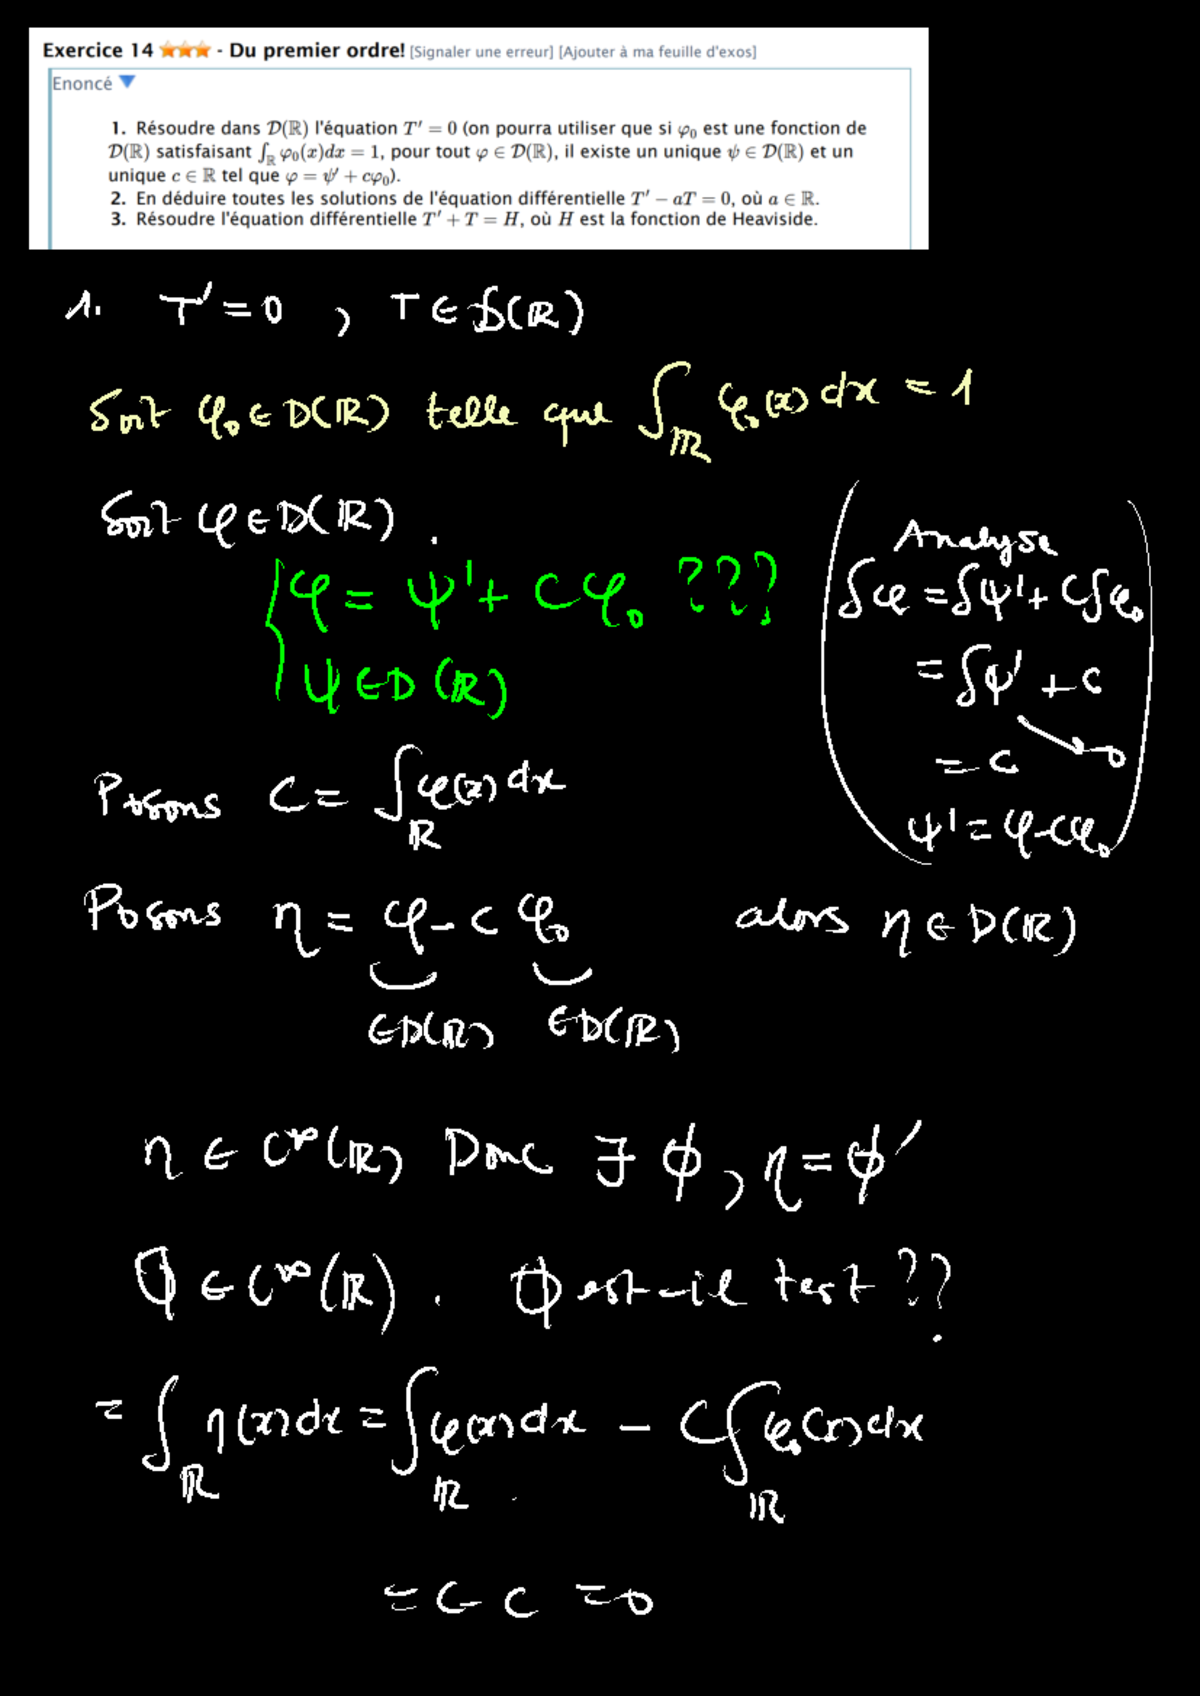 Exercice 14 ★★★ - Du premier ordre! [Signaler une erreur] [Ajouter à ma feuille d'exos]
Enoncé ▼
1. Résoudre dans 𝒟(ℝ) l'équation T' = 0 (on pourra utiliser que si φ₀ est une fonction de
𝒟(ℝ) satisfaisant ∫_ℝ φ₀(x)dx = 1, pour tout φ ∈ 𝒟(ℝ), il existe un unique ψ ∈ 𝒟(ℝ) et un
unique c ∈ ℝ tel que φ = ψ' + cφ₀).
2. En déduire toutes les solutions de l'équation différentielle T' − aT = 0, où a ∈ ℝ.
3. Résoudre l'équation différentielle T' + T = H, où H est la fonction de Heaviside.
1. T' = 0 , T ∈ 𝒟(ℝ)
Soit φ₀ ∈ D(ℝ) telle que ∫_ℝ φ₀(x) dx = 1
Soit φ ∈ D(ℝ) .
{ φ = ψ' + Cφ₀ ???
ψ ∈ D(ℝ)
( Analyse
∫φ = ∫ψ' + C∫φ₀
= ∫ψ' + c
→ 0
= c
ψ' = φ - cφ₀ )
Posons C = ∫_ℝ φ(x) dx
Posons η = φ - c φ₀ alors η ∈ D(ℝ)
∈ D(ℝ) ∈ D(ℝ)
η ∈ C^∞(ℝ) Donc ∃ ϕ , η = ϕ'
ϕ ∈ C^∞(ℝ) . ϕ est-il test ??
= ∫_ℝ η(x)dx = ∫_ℝ φ(x)dx - C∫_ℝ φ₀(x)dx
= C - C = 0